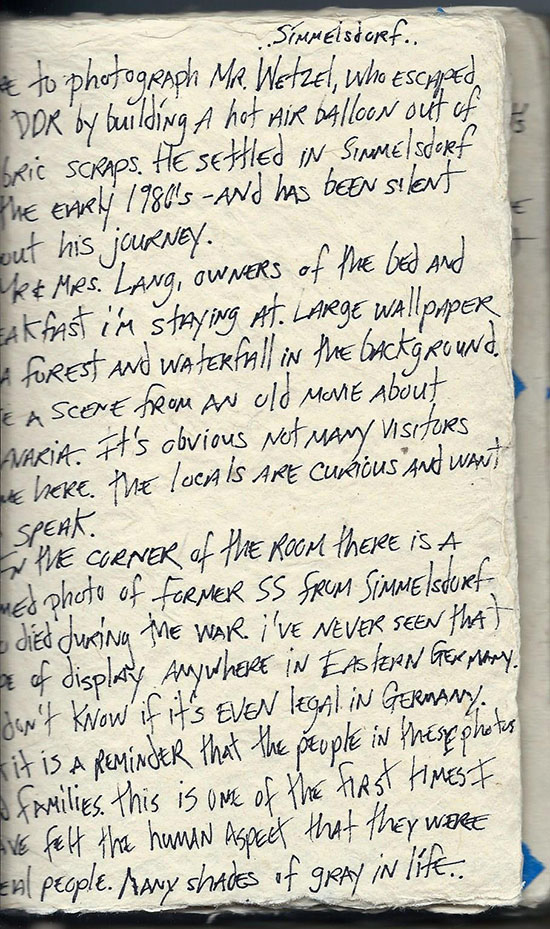 ..Simmelsdorf..
e to photograph Mr. Wetzel, who escaped
DDR by building A hot air balloon out of
bric scraps. He settled in Simmelsdorf
the early 1980's - and has been silent
out his journey.
Mr & Mrs. Lang, owners of the bed and
eakfast i'm staying at. Large wallpaper
A forest and waterfall in the background.
e a scene from an old movie about
varia. It's obvious not many visitors
me here. The locals are curious and want
speak.
In the corner of the room there is a
med photo of former SS from Simmelsdorf
o died during the war. i've never seen that
pe of display anywhere in Eastern Germany.
don't know if it's even legal in Germany.
t it is a reminder that the people in these photos
d families. This is one of the first times I
ave felt the human aspect that they were
eal people. Many shades of gray in life..